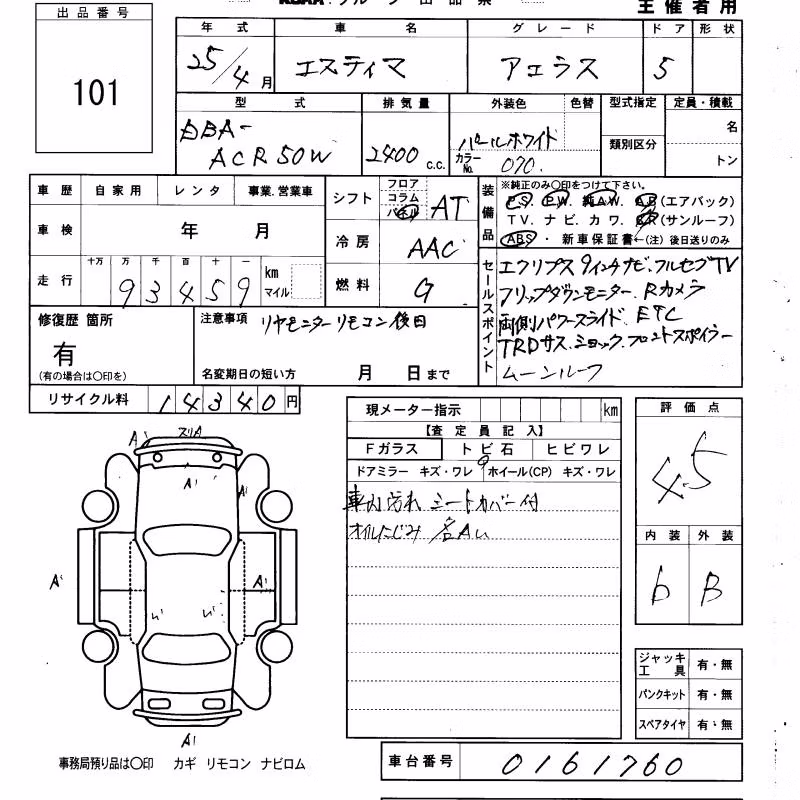 主催者用
出品番号
101
年式 車名 グレード ドア 形状
25/4月 エスティマ アエラス 5
型式 排気量 外装色 色替 型式指定 定員・積載
DBA-
ACR50W 2400 c.c. パールホワイト 名
カラーNo. 070. 類別区分 トン
車歴 自家用 レンタ 事業.営業車
車検 年 月
走行 十万 万 千 百 十 一 km マイル
93459
シフト フロア コラム パネル AT
冷房 AAC
燃料 G
装備品
※純正のみ〇印をつけて下さい。
P.S. P.W. 純A.W. A.B(エアバック)
TV. ナビ. カワ. S.R(サンルーフ)
ABS・新車保証書←(注)後日送りのみ
セールスポイント
エクリプス9インチナビ.フルセグTV
フリップダウンモニター.Rカメラ
両側パワースライド.ETC
TRDサス.ショック.フロントスポイラー
ムーンルーフ
修復歴 箇所
有
(有の場合は〇印を)
注意事項 リヤモニターリモコン後日
名変期日の短い方 月 日まで
リサイクル料 14340円
現メーター指示 km
【査定員記入】
Fガラス トビ石 ヒビワレ
ドアミラー キズ・ワレ ホイール(CP) キズ・ワレ
車内汚れ シートカバー付
オイルにじみ 各AU
評価点
4.5
内装 外装
b B
ジャッキ工具 有・無
パンクキット 有・無
スペアタイヤ 有・無
A' スリA
A' A'
A' A'
A'
事務局預り品は〇印 カギ リモコン ナビロム
車台番号 0161760